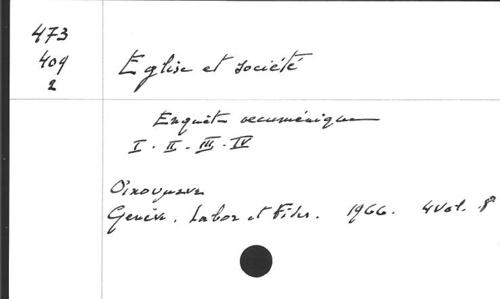 473
409
2
Eglise et société
Enquête oecuménique
I - II - III - IV
Genève. Labor et Fides. 1966. 4 vol. 8°